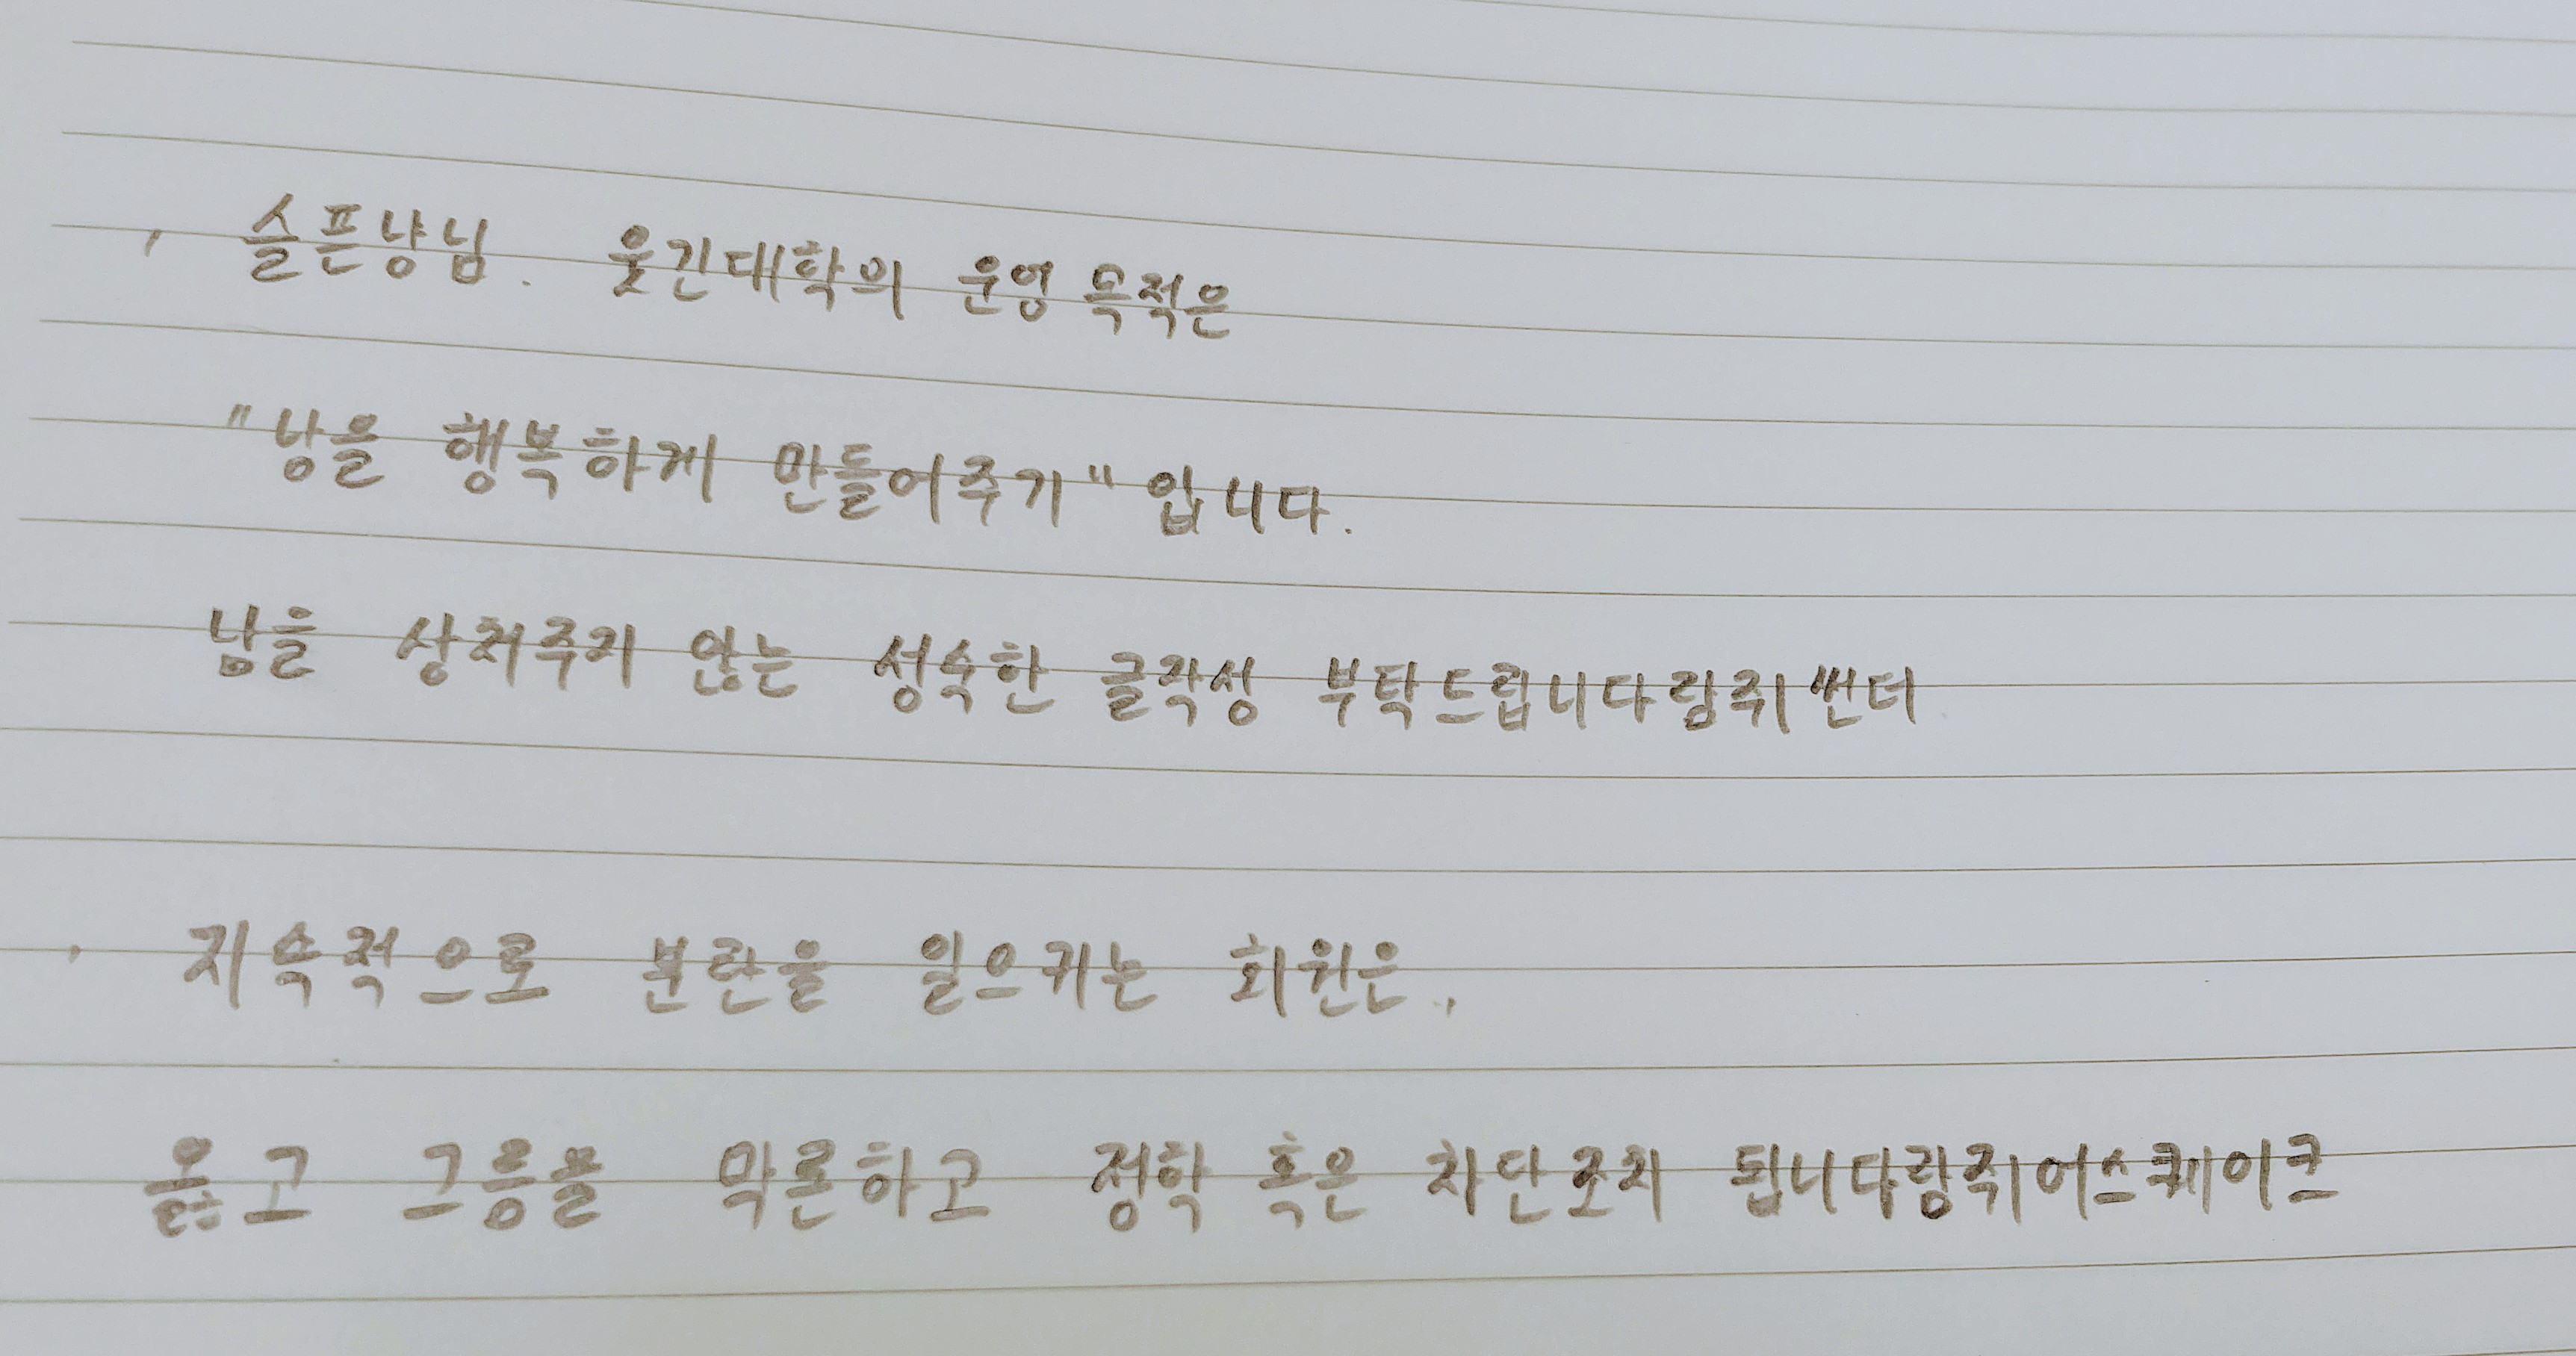 슬픈냥님. 웃긴대학의 운영 목적은
"낭을 행복하게 만들어주기" 입니다.
남을 상처주지 않는 성숙한 글작성 부탁드립니다람쥐썬더
지속적으로 분란을 일으키는 회원은,
옳고 그릉을 막론하고 정학 혹은 차단조치 됩니다람쥐어스퀘이크